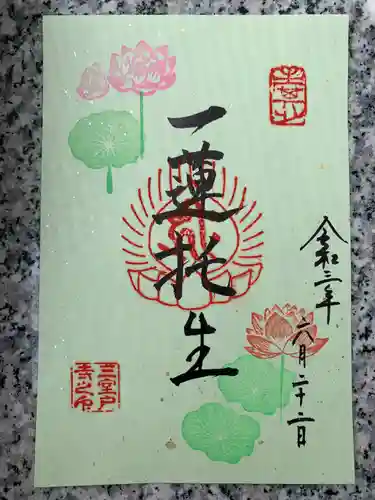 一蓮托生
令和三年
六月二十二日
三室戸
寺之印